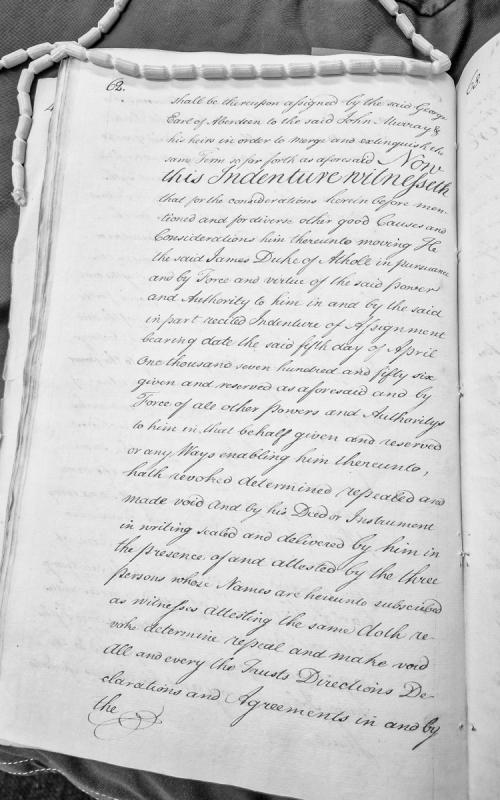 62.
shall be thereupon assigned by the said George
Earl of Aberdeen to the said John Murray &
his heirs in order to merge and extinguish the
same Term so far forth as aforesaid Now
this Indenture witnesseth
that for the considerations herein before men-
-tioned and for diverse other good Causes and
Considerations him thereunto moving He
the said James Duke of Atholl in pursuance
and by Force and virtue of the said power
and Authority to him in and by the said
in part recited Indenture of Assignment
bearing date the said fifth day of April
One thousand seven hundred and fifty six
given and reserved as aforesaid and by
Force of all other powers and Authoritys
to him in that behalf given and reserved
or any Ways enabling him thereunto,
hath revoked determined repealed and
made void and by his Deed or Instrument
in writing sealed and delivered by him in
the presence of and attested by the three
persons whose Names are hereunto subscribed
as witnesses attesting the same doth re-
voke determine repeal and make void
all and every the Trusts Directions De-
clarations and Agreements in and by
the
63.